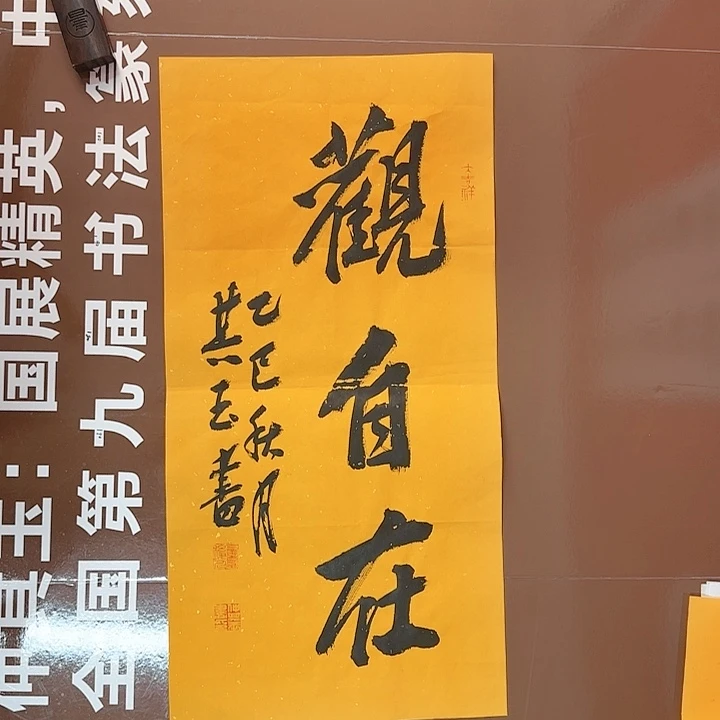 觀自在
乙巳秋月
其玉書
仲其玉：国展精英，中
全国第九届书法篆